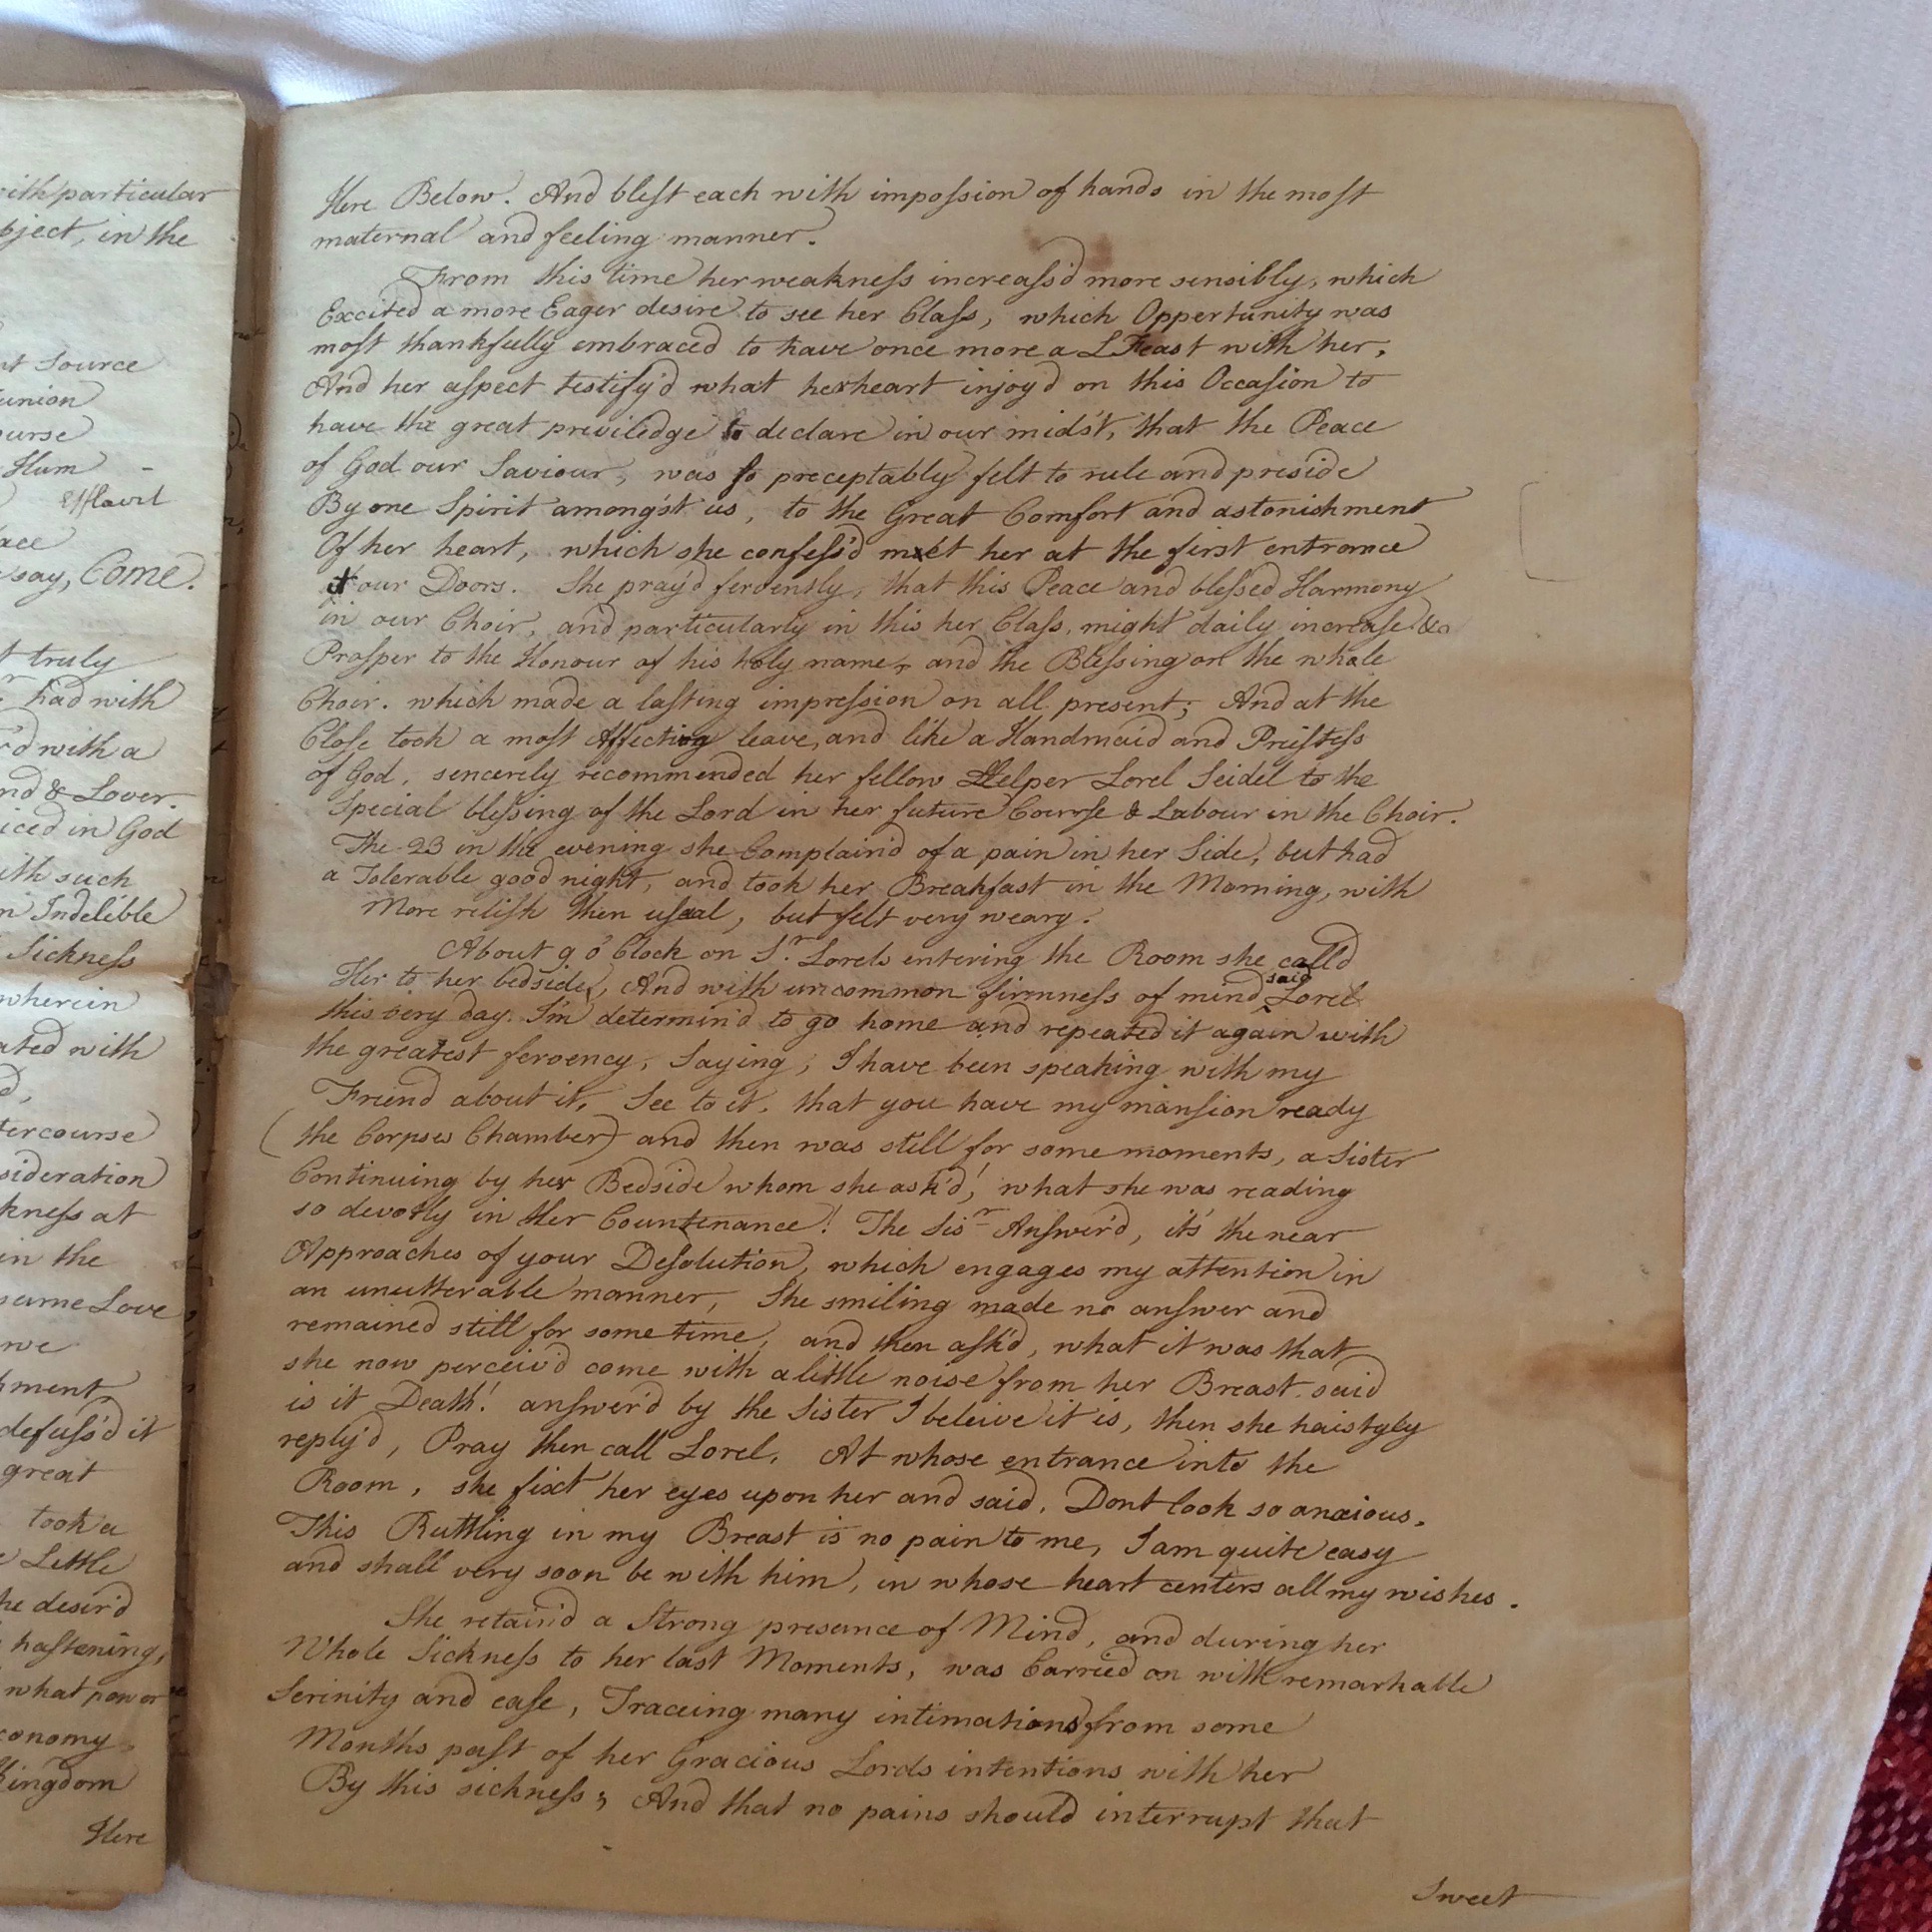 with particular
bject, in the
nt Source
union
ourse
Hum -
Efflavit
ace
say, Come.
t truly
had with
r'd with a
nd & Lover.
iced in God
ith such
n Indelible
Sickness
wherein
ated with
d,
tercourse
sideration
kness at
in the
same Love
we
hment
defuss'd it
great
took a
Little
he desir'd
hastening,
what power
conomy
Kingdom
Here
Here Below. And blest each with impossion of hands in the most
maternal and feeling manner.
From this time her weakness increass'd more sensibly, which
Excited a more Eager desire to see her Class, which Oppertunity was
most thankfully embraced to have once more a L Feast with her,
And her aspect testify'd what her heart injoy'd on this Occasion to
have the great previledge to declare in our mids't, that the Peace
of God our Saviour, was so preceptably felt to rule and preside
By one Spirit amongst us, to the Great Comfort and astonishment
Of her heart, which she confess'd met her at the first entrance
our Doors. She pray'd fervently, that this Peace and blessed Harmony
in our Choir, and particularly in this her Class, might daily increase &
Prosper to the Honour of his holy name, and the Blessing on the whole
Choir. which made a lasting impression on all present; And at the
Close took a most Affecting leave, and like a Handmaid and Preistess
of God, sencerely recommended her fellow Helper Lorel Seidel to the
Special blessing of the Lord in her future Course & Labour in the Choir.
The 23 in the evening she Complain'd of a pain in her Side, but had
a Tolerable good night, and took her Breakfast in the Morning, with
More relish then usual, but felt very weary.
About 9 o' Clock on Sr. Lorels entering the Room she call'd
Her to her bedside, And with uncommon firmness of mind said Lorel
this very day. I'm determin'd to go home and repeated it again with
the greatest fervency, Saying, I have been speaking with my
Friend about it, See to it, that you have my mansion ready
(the Corpses Chamber) and then was still for some moments, a Sister
Continuing by her Bedside whom she ask'd! what she was reading
so devotly in Her Countenance! The Sisr Answer'd, it's the near
Approaches of your Desolution, which engages my attention in
an unutterable manner, She smiling made no answer and
remained still for some time, and then ask'd, what it was that
she now perceiv'd come with a little noise from her Breast, said
is it Death! answer'd by the Sister I beleive it is, then she haistyly
reply'd, Pray then call Lorel. At whose entrance into the
Room, she fixt her eyes upon her and said, Dont look so anxious.
This Ruttling in my Breast is no pain to me, I am quite easy
and shall very soon be with him, in whose heart centers all my wishes.
She retain'd a Strong presance of Mind, and during her
Whole Sickness to her last Moments, was Carried on with remarkable
Serinity and ease, Traceing many intimations from some
Months past of her Gracious Lords intentions with her
By this sickness, And that no pains should interrupt that
Sweet